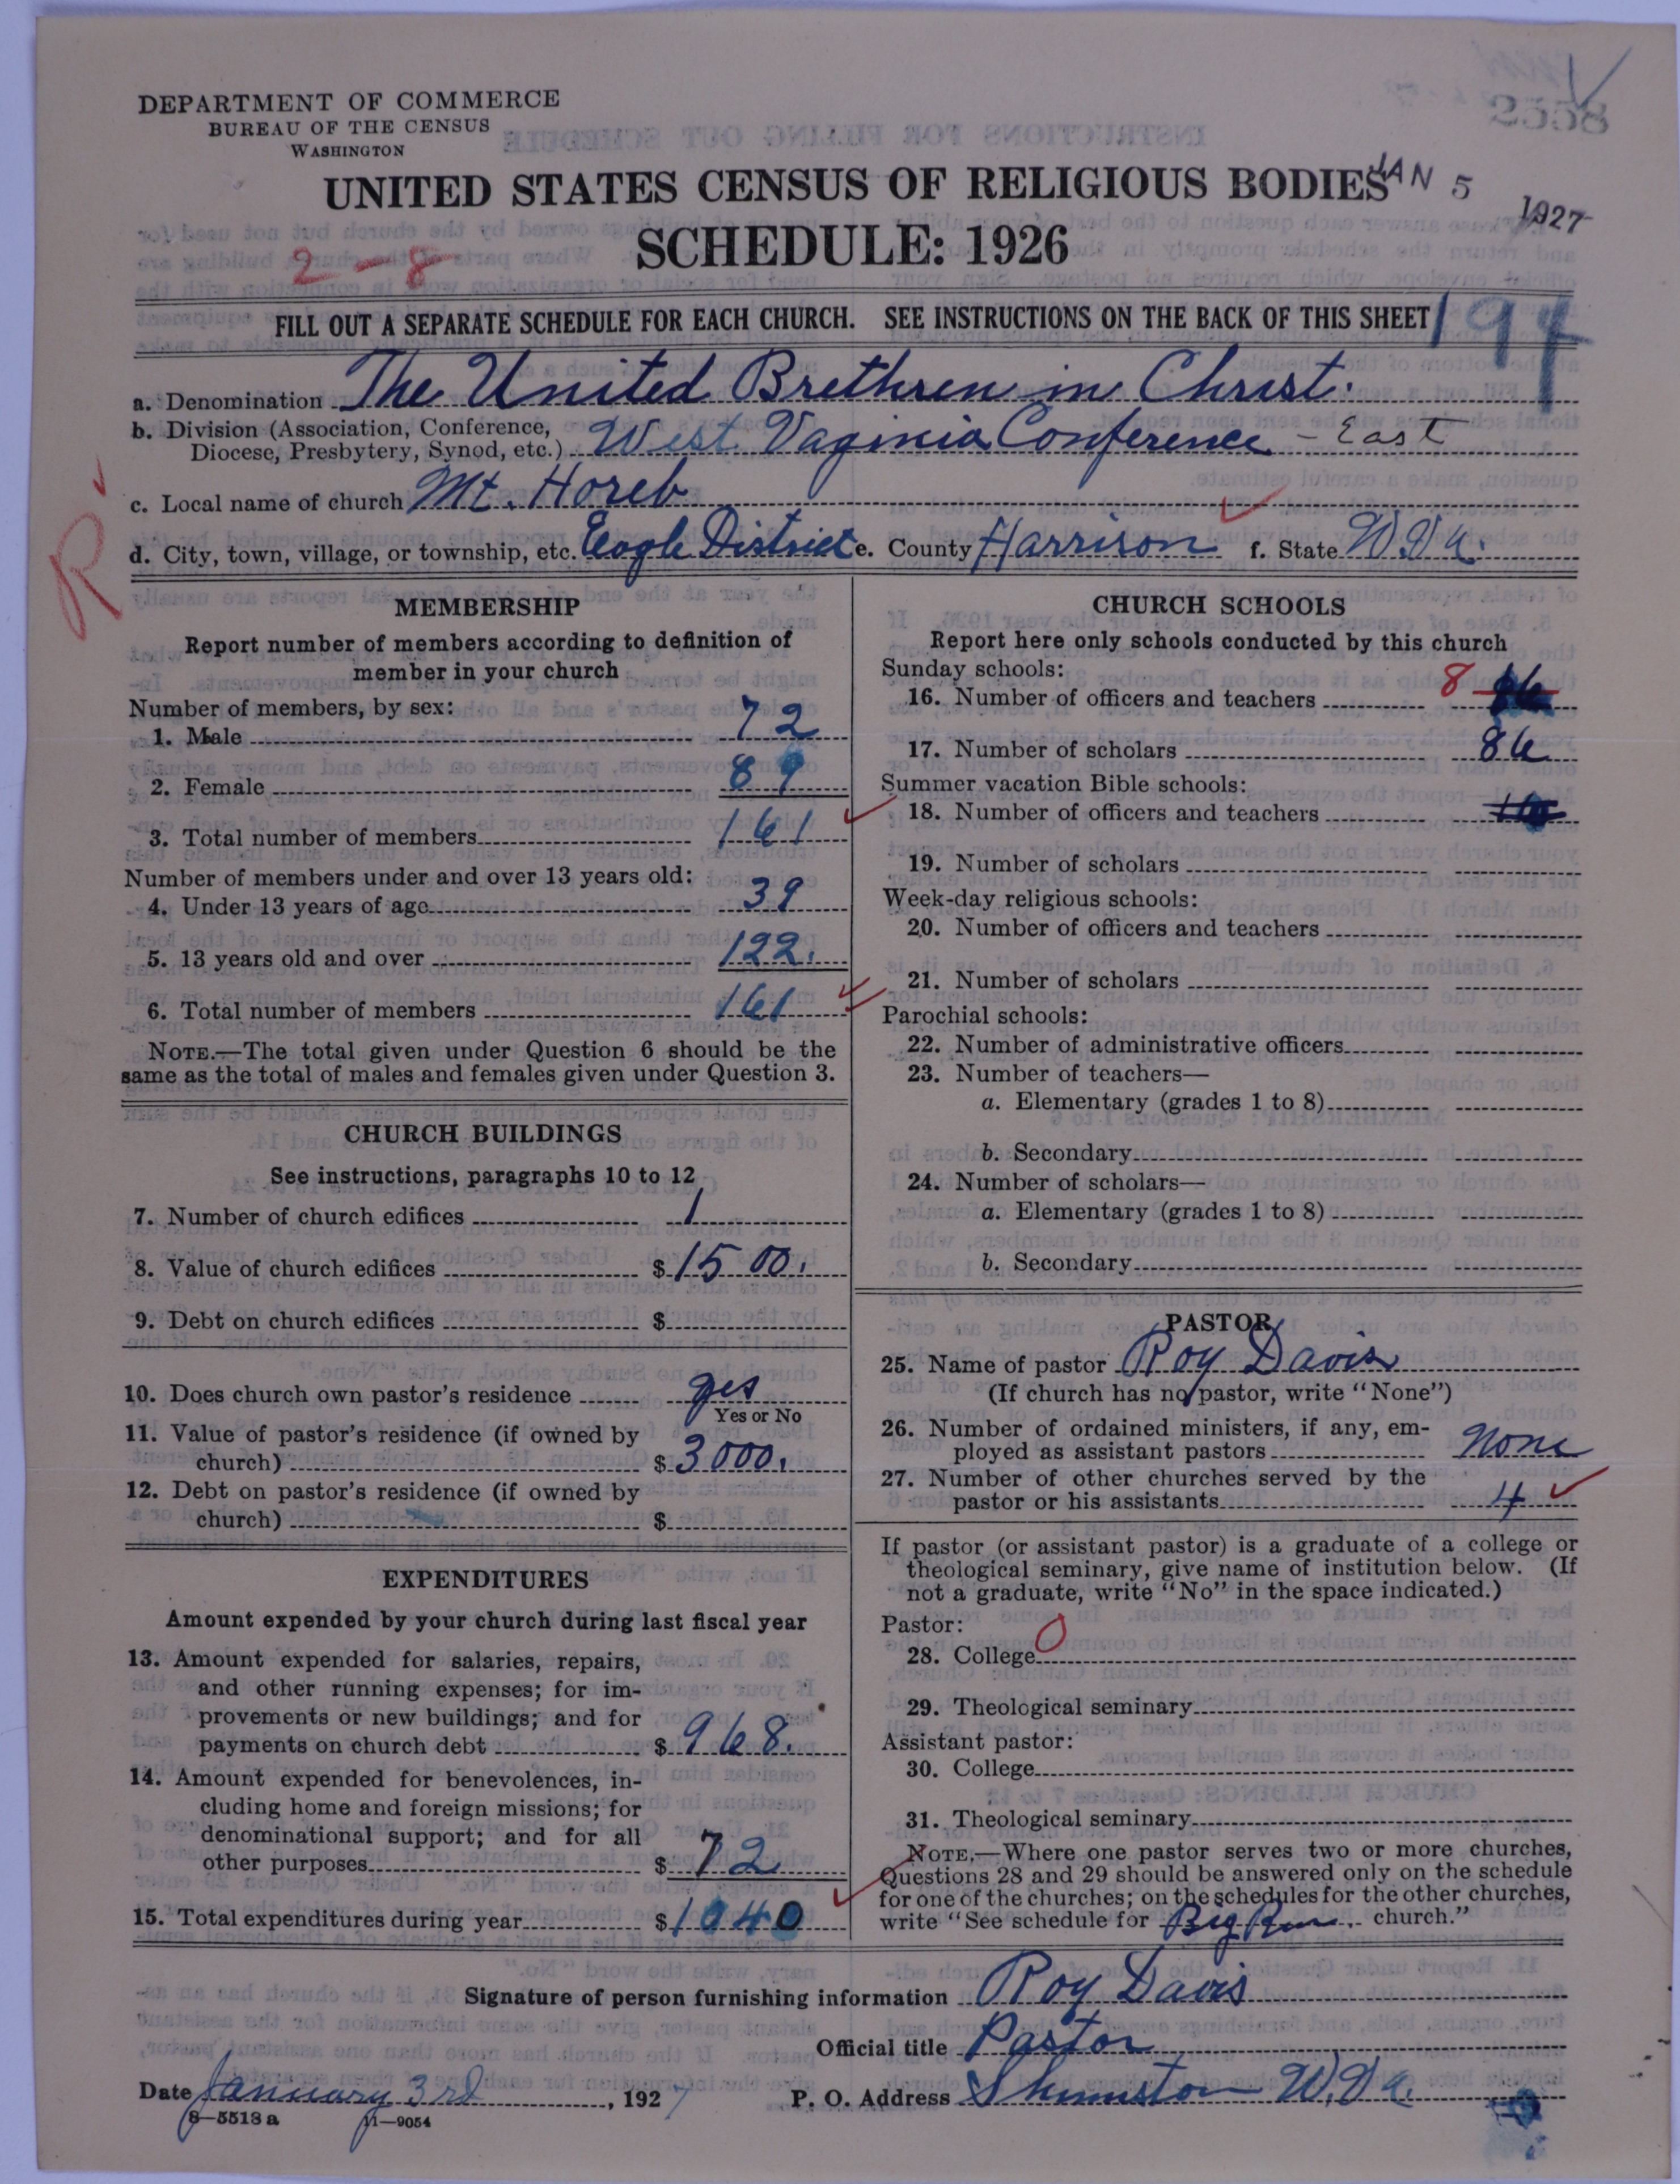 DEPARTMENT OF COMMERCE
BUREAU OF THE CENSUS
WASHINGTON
2558
UNITED STATES CENSUS OF RELIGIOUS BODIES
JAN 5 1927
SCHEDULE: 1926
2-8
FILL OUT A SEPARATE SCHEDULE FOR EACH CHURCH. SEE INSTRUCTIONS ON THE BACK OF THIS SHEET
194
a. Denomination The United Brethren in Christ.
b. Division (Association, Conference, Diocese, Presbytery, Synod, etc.) West Vaginia Conference - East
R
c. Local name of church Mt. Horeb
d. City, town, village, or township, etc. Eagle District e. County Harrison f. State W.Va.
MEMBERSHIP
Report number of members according to definition of
member in your church
Number of members, by sex:
1. Male 72
2. Female 89
3. Total number of members 161
Number of members under and over 13 years old:
4. Under 13 years of age 39
5. 13 years old and over 122.
6. Total number of members 161
NOTE.—The total given under Question 6 should be the
same as the total of males and females given under Question 3.
CHURCH BUILDINGS
See instructions, paragraphs 10 to 12
7. Number of church edifices 1
8. Value of church edifices $ 1500.
9. Debt on church edifices $
10. Does church own pastor's residence yes
Yes or No
11. Value of pastor's residence (if owned by
church) $ 3000.
12. Debt on pastor's residence (if owned by
church) $
EXPENDITURES
Amount expended by your church during last fiscal year
13. Amount expended for salaries, repairs,
and other running expenses; for im-
provements or new buildings; and for
payments on church debt $ 968.
14. Amount expended for benevolences, in-
cluding home and foreign missions; for
denominational support; and for all
other purposes $ 72
15. Total expenditures during year $ 1040
CHURCH SCHOOLS
Report here only schools conducted by this church
Sunday schools:
16. Number of officers and teachers 8
17. Number of scholars 86
Summer vacation Bible schools:
18. Number of officers and teachers
19. Number of scholars
Week-day religious schools:
20. Number of officers and teachers
21. Number of scholars
Parochial schools:
22. Number of administrative officers
23. Number of teachers—
a. Elementary (grades 1 to 8)
b. Secondary
24. Number of scholars—
a. Elementary (grades 1 to 8)
b. Secondary
PASTOR
25. Name of pastor Roy Davis
(If church has no pastor, write "None")
26. Number of ordained ministers, if any, em-
ployed as assistant pastors None
27. Number of other churches served by the
pastor or his assistants 4
If pastor (or assistant pastor) is a graduate of a college or
theological seminary, give name of institution below. (If
not a graduate, write "No" in the space indicated.)
Pastor:
28. College 0
29. Theological seminary
Assistant pastor:
30. College
31. Theological seminary
NOTE.—Where one pastor serves two or more churches,
Questions 28 and 29 should be answered only on the schedule
for one of the churches; on the schedules for the other churches,
write "See schedule for Big Run church."
Signature of person furnishing information Roy Davis
Official title Pastor
Date January 3rd, 1927 P. O. Address Shinnston W.Va.
8—5513 a 11—9054